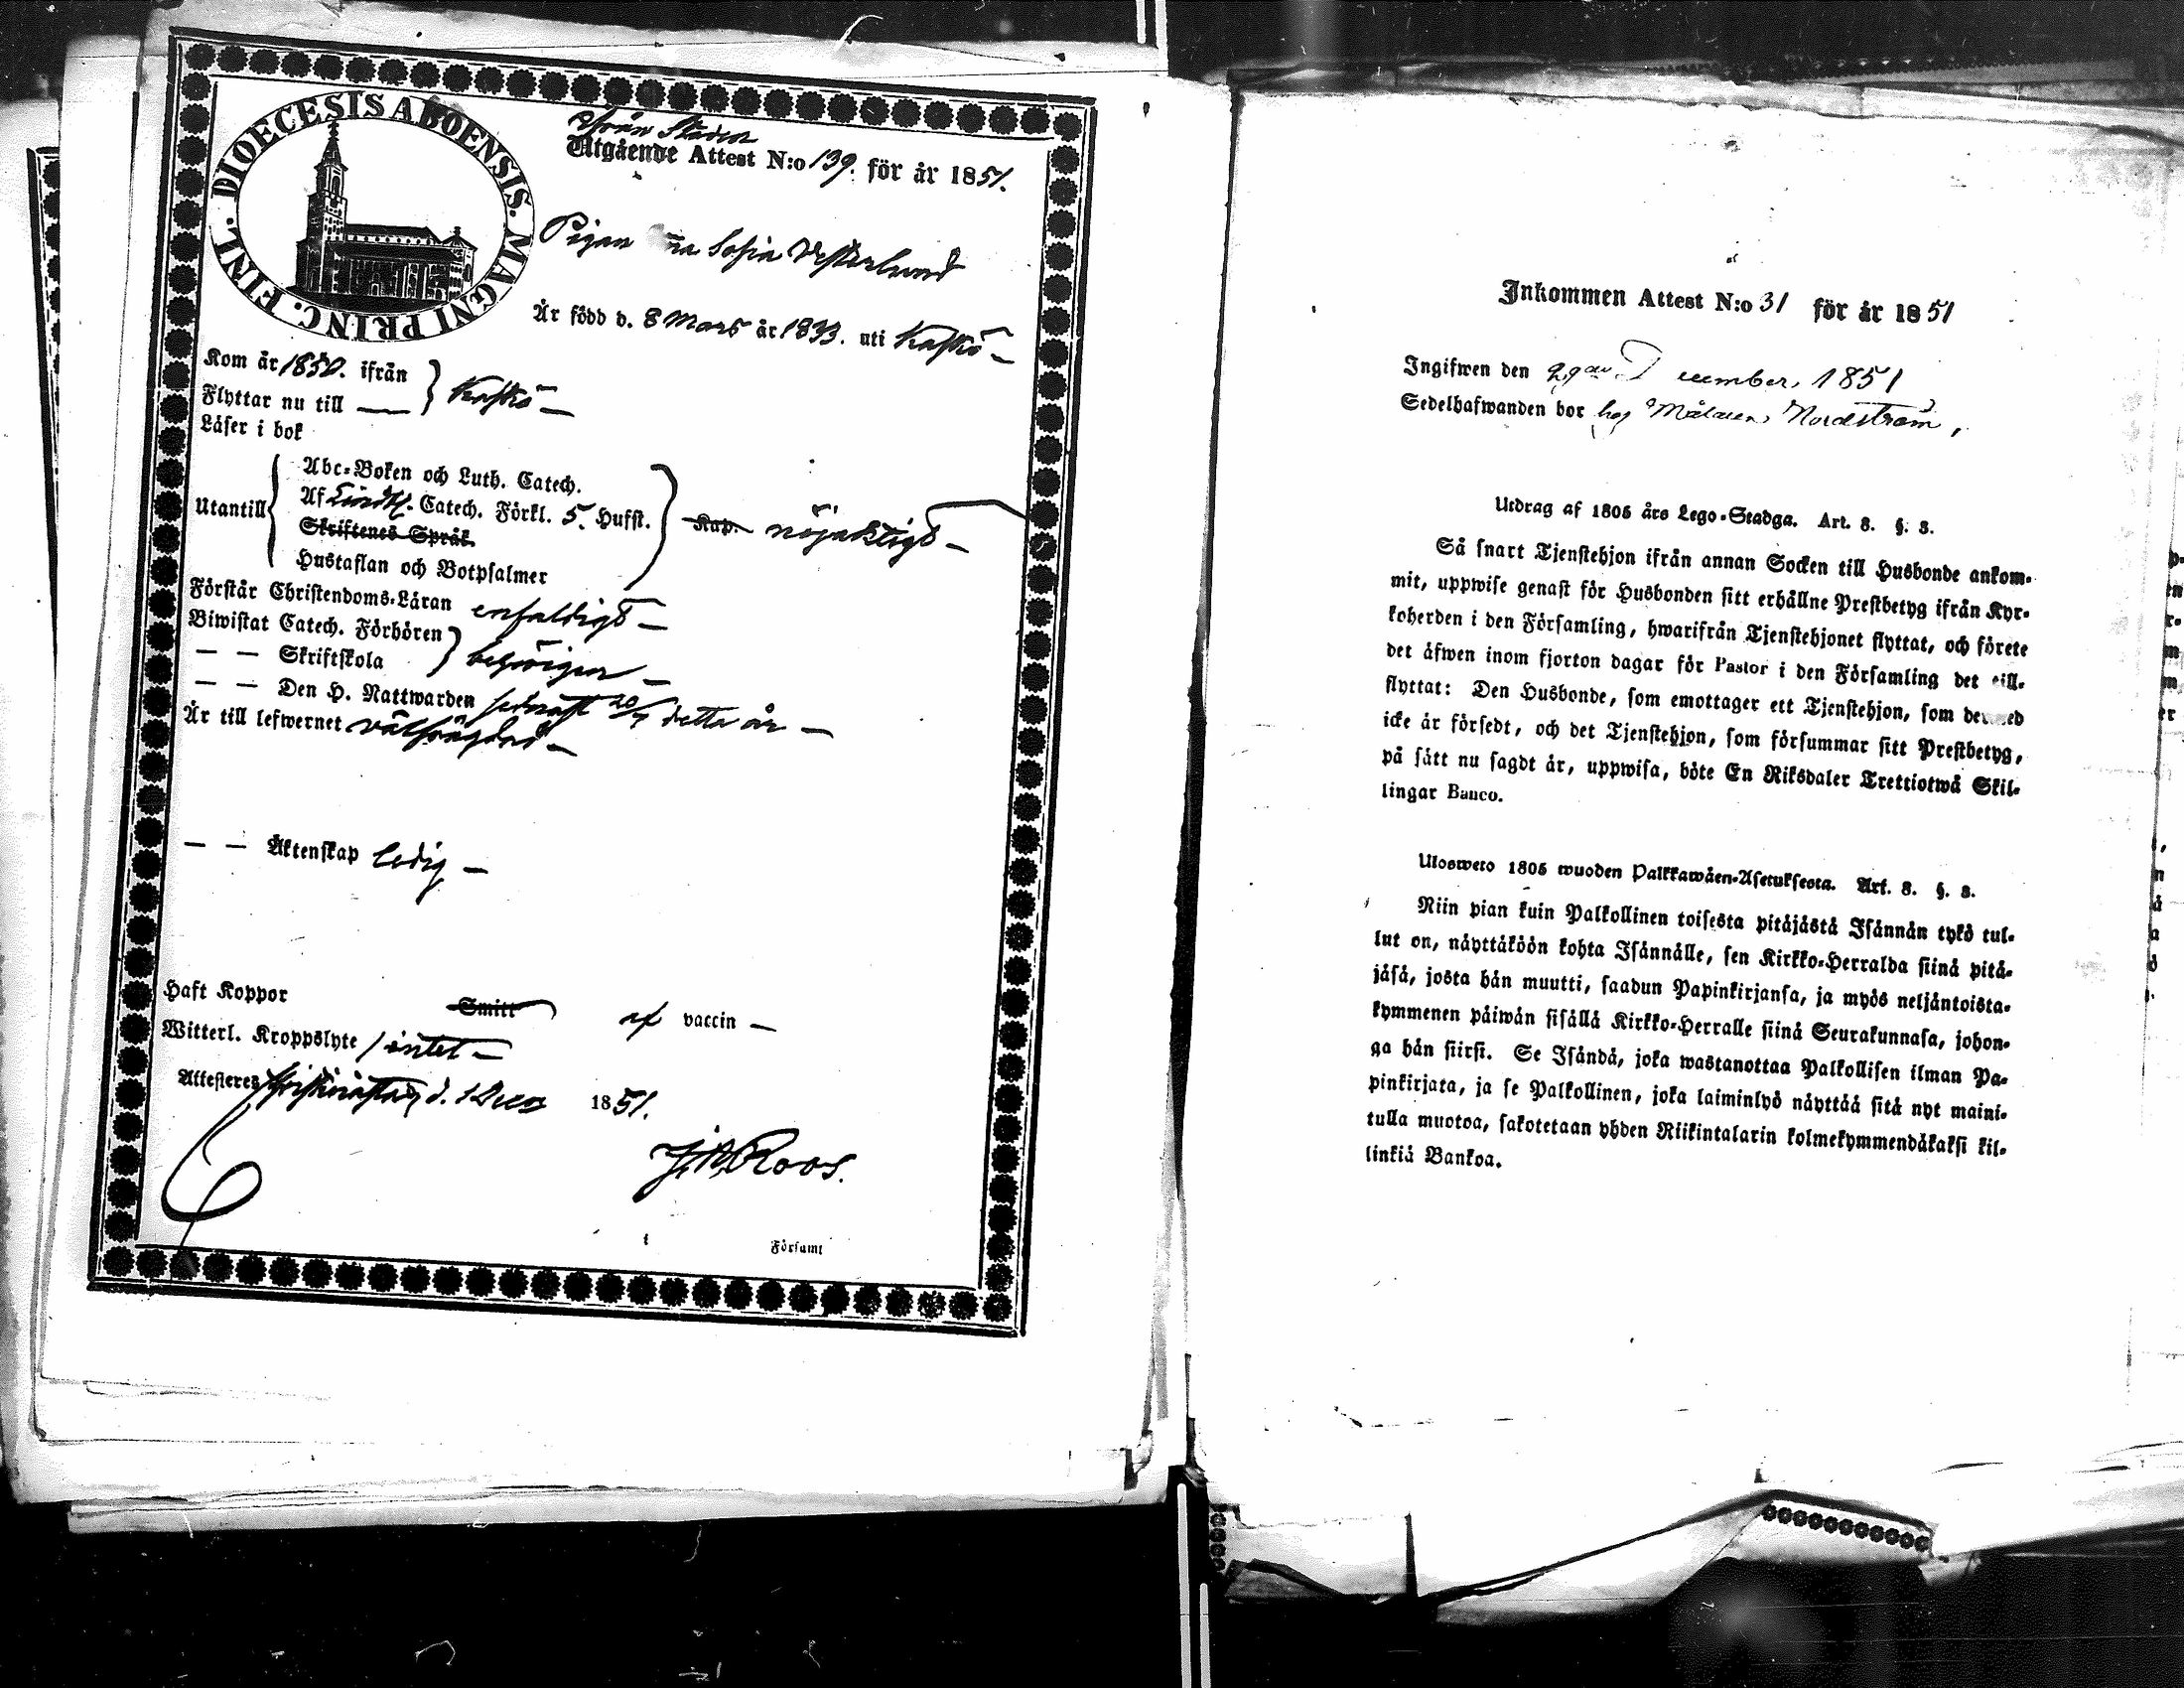 DIOECESIS ABOENSIS. MAGNI PRINC. FINL.
Från Staden
Utgående Attest N:o 139. för år 1851.
Pigan na Sofia Westerlund
Är född d. 8 Mars år 1833. uti Kaskö –
Kom år 1850. ifrån
Flyttar nu till — } Kaskö –
Läser i bok
Utantill
Abc-Boken och Luth. Catech.
Af Catech. Förkl. 5. Hufst.
Skriftenes Språk.
Hustaflan och Botpsalmer
Kap. nöjaktigt –
Förstår Christendoms-Läran enfaldigt –
Biwistat Catech. Förhören
— — Skriftskola } behörigen –
— — Den H. Nattwarden sednast 20/7 detta år –
Är till lefwernet välfrägdad –
— — Äktenskap ledig –
Haft Koppor Smitt af vaccin –
Witterl. Kroppslyte intet –
Attesterer d. 1 Dec 1851.
Roos.
Församt
Inkommen Attest N:o 31 för år 1851
Ingifwen den December 1851
Sedelhafwanden bor hos Målaren Nordström,
Utdrag af 1805 års Lego-Stadga. Art. 8. §. 3.
Så snart Tjenstehjon ifrån annan Socken till Husbonde ankom-
mit, uppwise genast för Husbonden sitt erhållne Prestbetyg ifrån Kyr-
koherden i den Församling, hwarifrån Tjenstehjonet flyttat, och förete
det äfwen inom fjorton dagar för Pastor i den Församling det till-
flyttat: Den Husbonde, som emottager ett Tjenstehjon, som dermed
icke är försedt, och det Tjenstehjon, som försummar sitt Prestbetyg,
på sätt nu sagdt är, uppwisa, böte En Riksdaler Trettiotwå Skil-
lingar Banco.
Ulosweto 1805 wuoden Palkkawäen-Asetuksesta. Art. 8. §. 3.
Niin pian kuin Palkollinen toisesta pitäjästä Isännän tykö tul-
lut on, näyttäköön kohta Isännälle, sen Kirkko-Herralda siinä pitä-
jäsä, josta hän muutti, saadun Papinkirjansa, ja myös neljäntoista-
kymmenen päiwän sisällä Kirkko-Herralle siinä Seurakunnasa, johon-
ga hän siirsi. Se Isändä, joka wastanottaa Palkollisen ilman Pa-
pinkirjata, ja se Palkollinen, joka laiminlyö näyttää sitä nyt maini-
tulla muotoa, sakotetaan yhden Riikintalarin kolmekymmendäkaksi kil-
linkiä Bankoa.